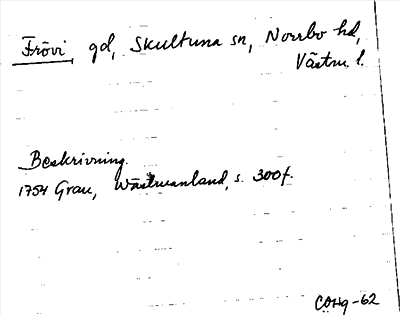 Frövi, gd, Skultuna sn, Norrbo hd,
Västm. l.
Beskrivning.
1754 Grau, Wästmanland, s. 300f.
COHg-62